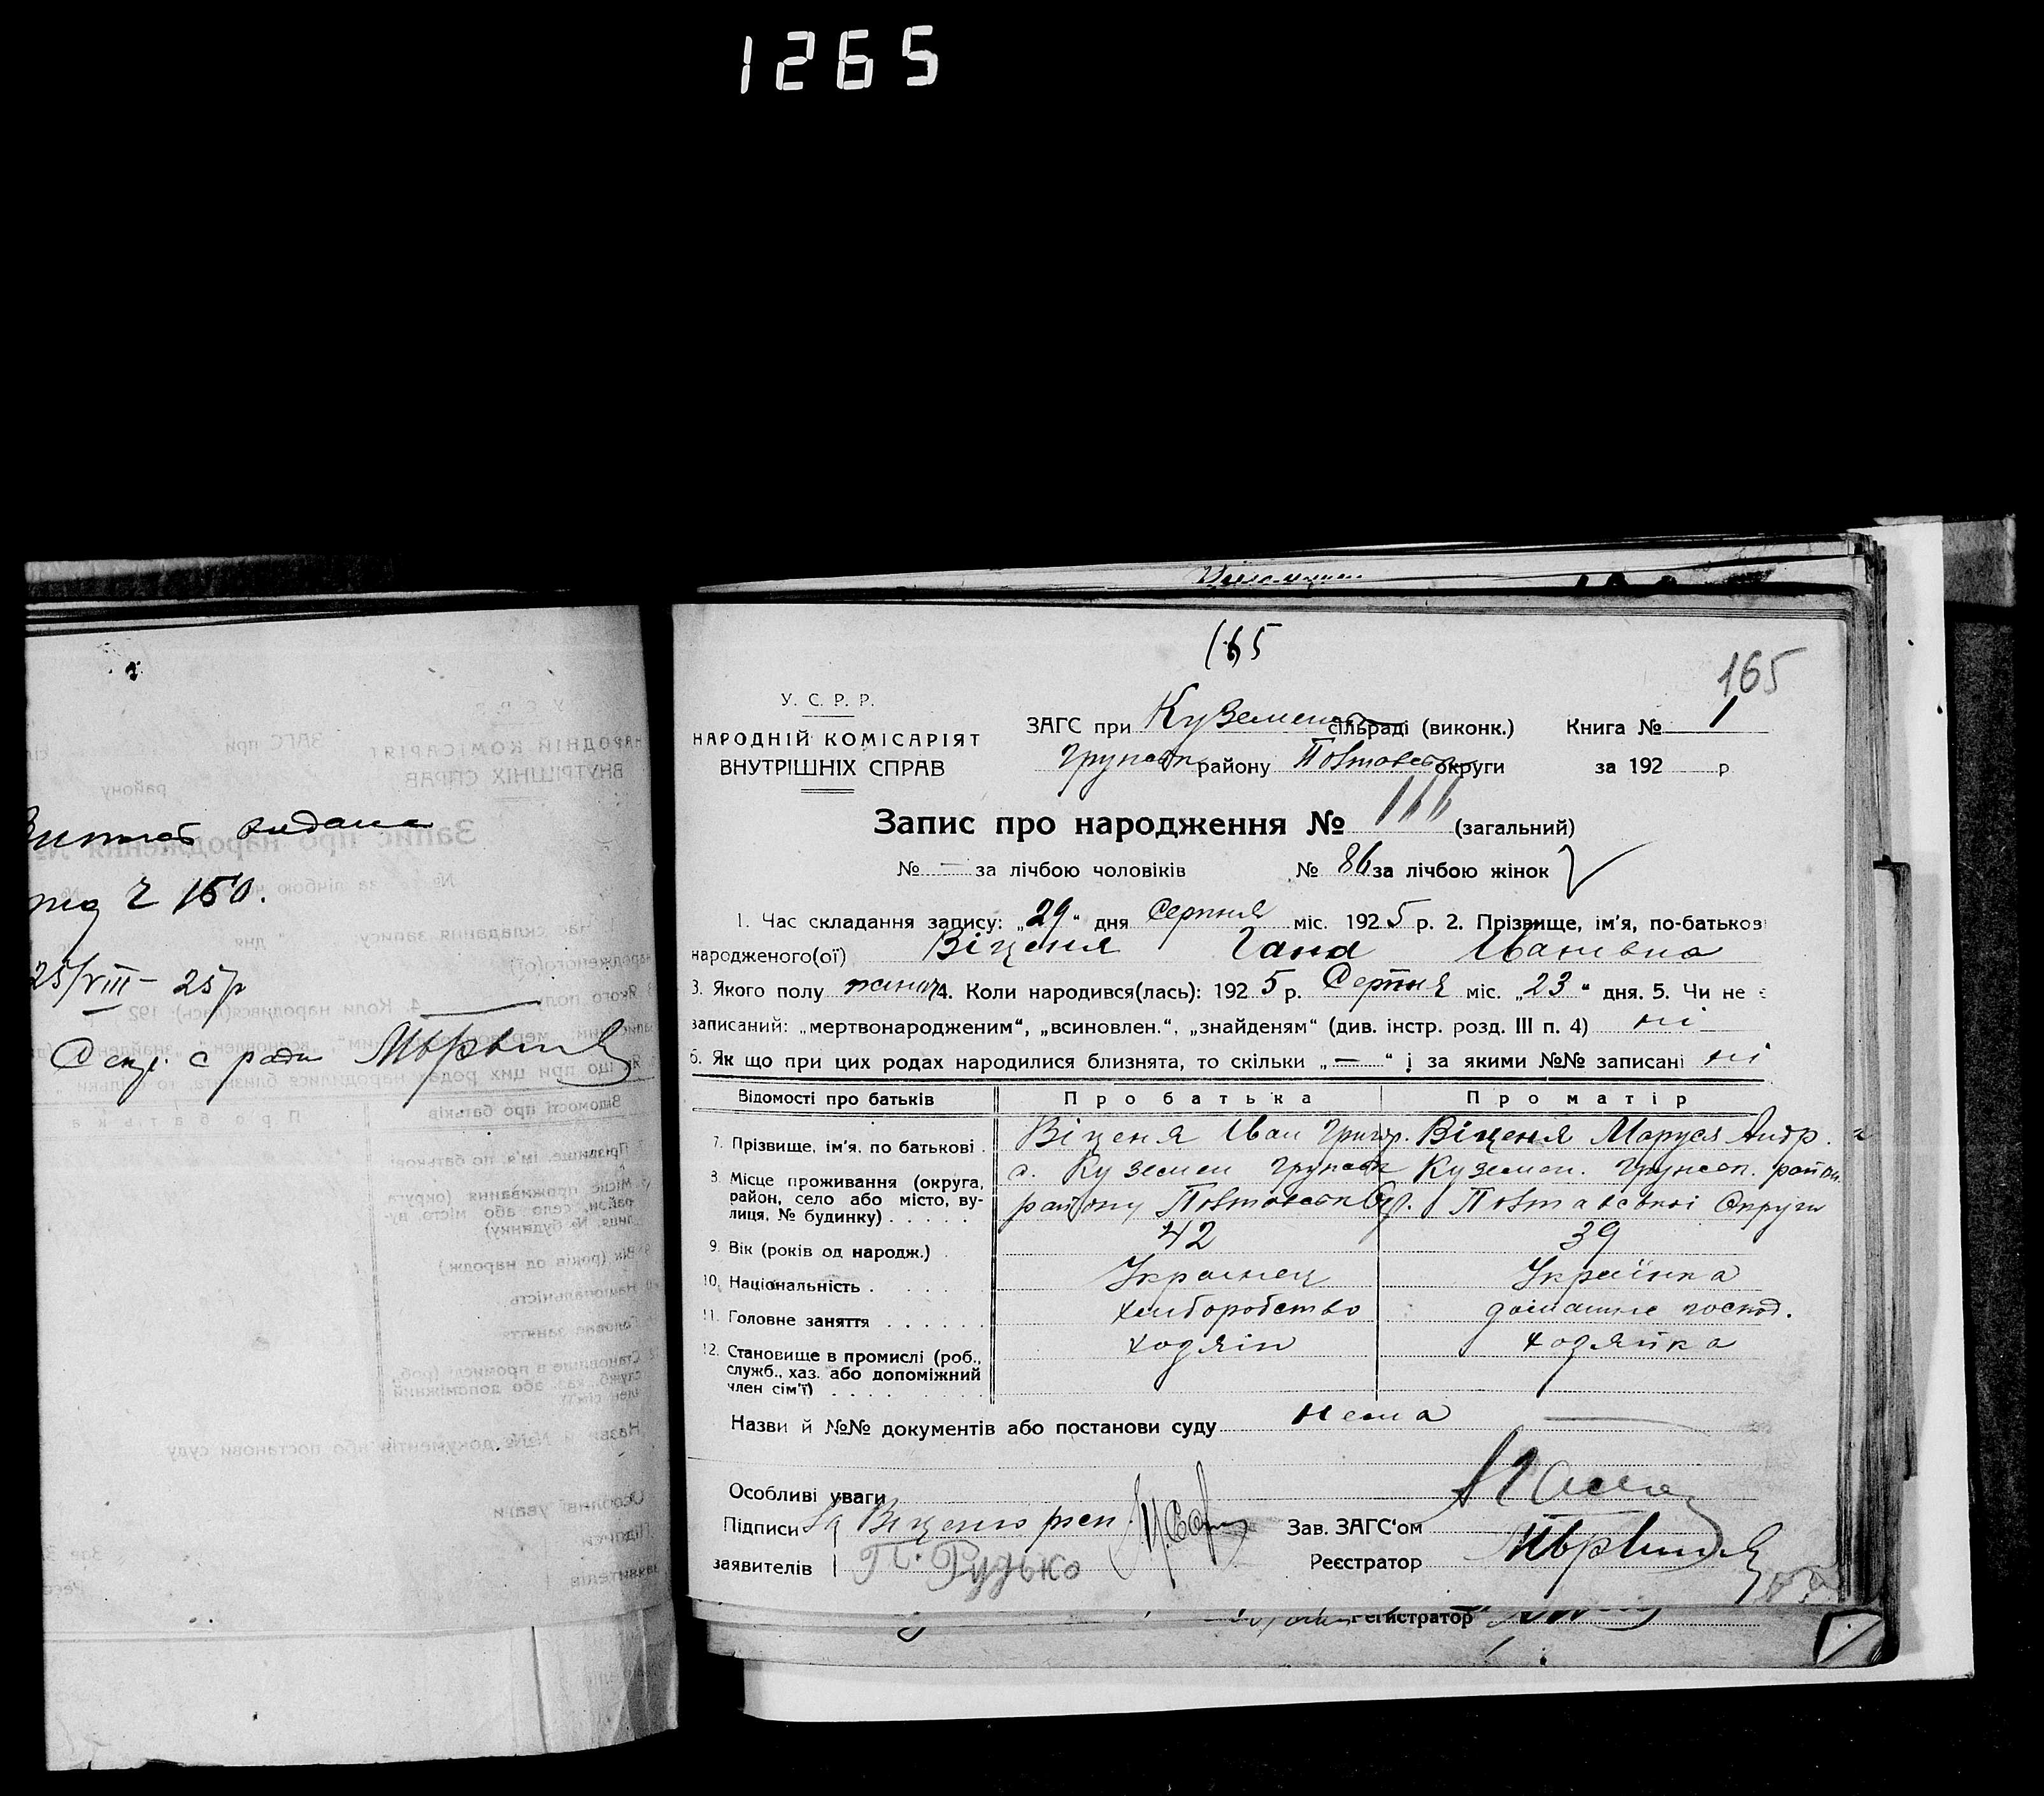 1265
165
165
У. С. Р. Р.
НАРОДНІЙ КОМІСАРІЯТ
ВНУТРІШНІХ СПРАВ
ЗАГС при Куземенс сільраді (виконк.) Книга № 1
Грунськ району Полтавськ округи за 192 р
Запис про народження № (загальний)
№ — за лічбою чоловіків № 86 за лічбою жінок
1. Час складання запису: „29“ дня Серпня міс. 1925 р. 2. Прізвище, ім'я, по-батькові
народженого(ої) Віценя Гана Іванівна
3. Якого полу жіноч 4. Коли народився(лась): 1925 р. Серпня міс. „23“ дня. 5. Чи не є
записаний: „мертвонародженим“, „всиновлен.“, „знайденям“ (див. інстр. розд. III п. 4) ні
6. Як що при цих родах народилися близнята, то скільки „—“ і за якими №№ записані ні
Відомості про батьків Про батька Про матір
7. Прізвище, ім'я, по батькові Віценя Іван Григор. Віценя Маруся Андр.
8. Місце проживання (округа, район, село або місто, вулиця, № будинку) с. Куземен Грунськ району Полтавськ Окр. Куземен. Грунськ. район. Полтавської Округи
9. Вік (років од народж.) 42 39
10. Національність Украинец Українка
11. Головне заняття хліборобство домашнє господ.
12. Становище в промислі (роб., служб., хаз. або допоміжний член сім'ї) ходяін ходяйка
Назви й №№ документів або постанови суду нема
Особливі уваги
Підписи За Віценю
заявителів П. Рудько
Зав. ЗАГС'ом
Реєстратор
Регистратор
видана
під Ч 150.
25/VIII – 25 р
Секр. с ради